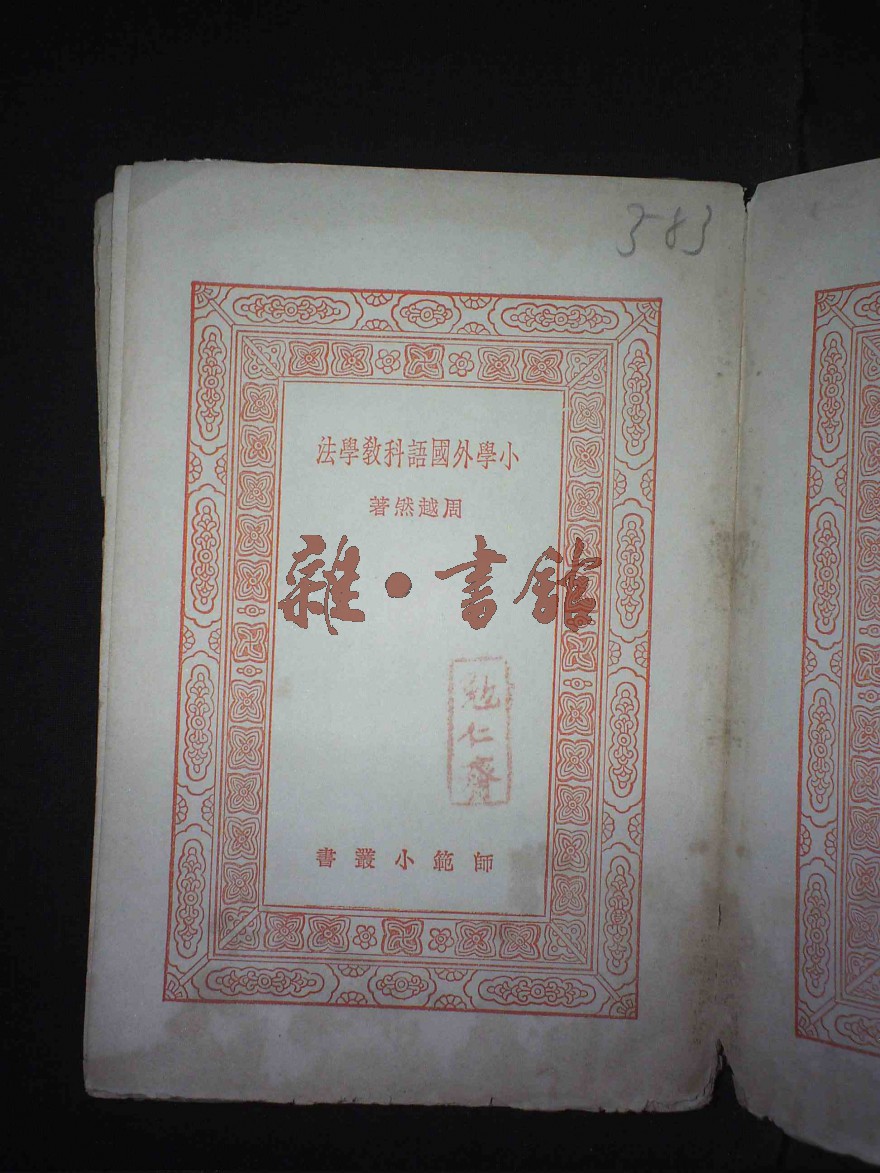 583
小學外國語科敎學法
周越然著
雜·書館
勉仁齋
師範小叢書